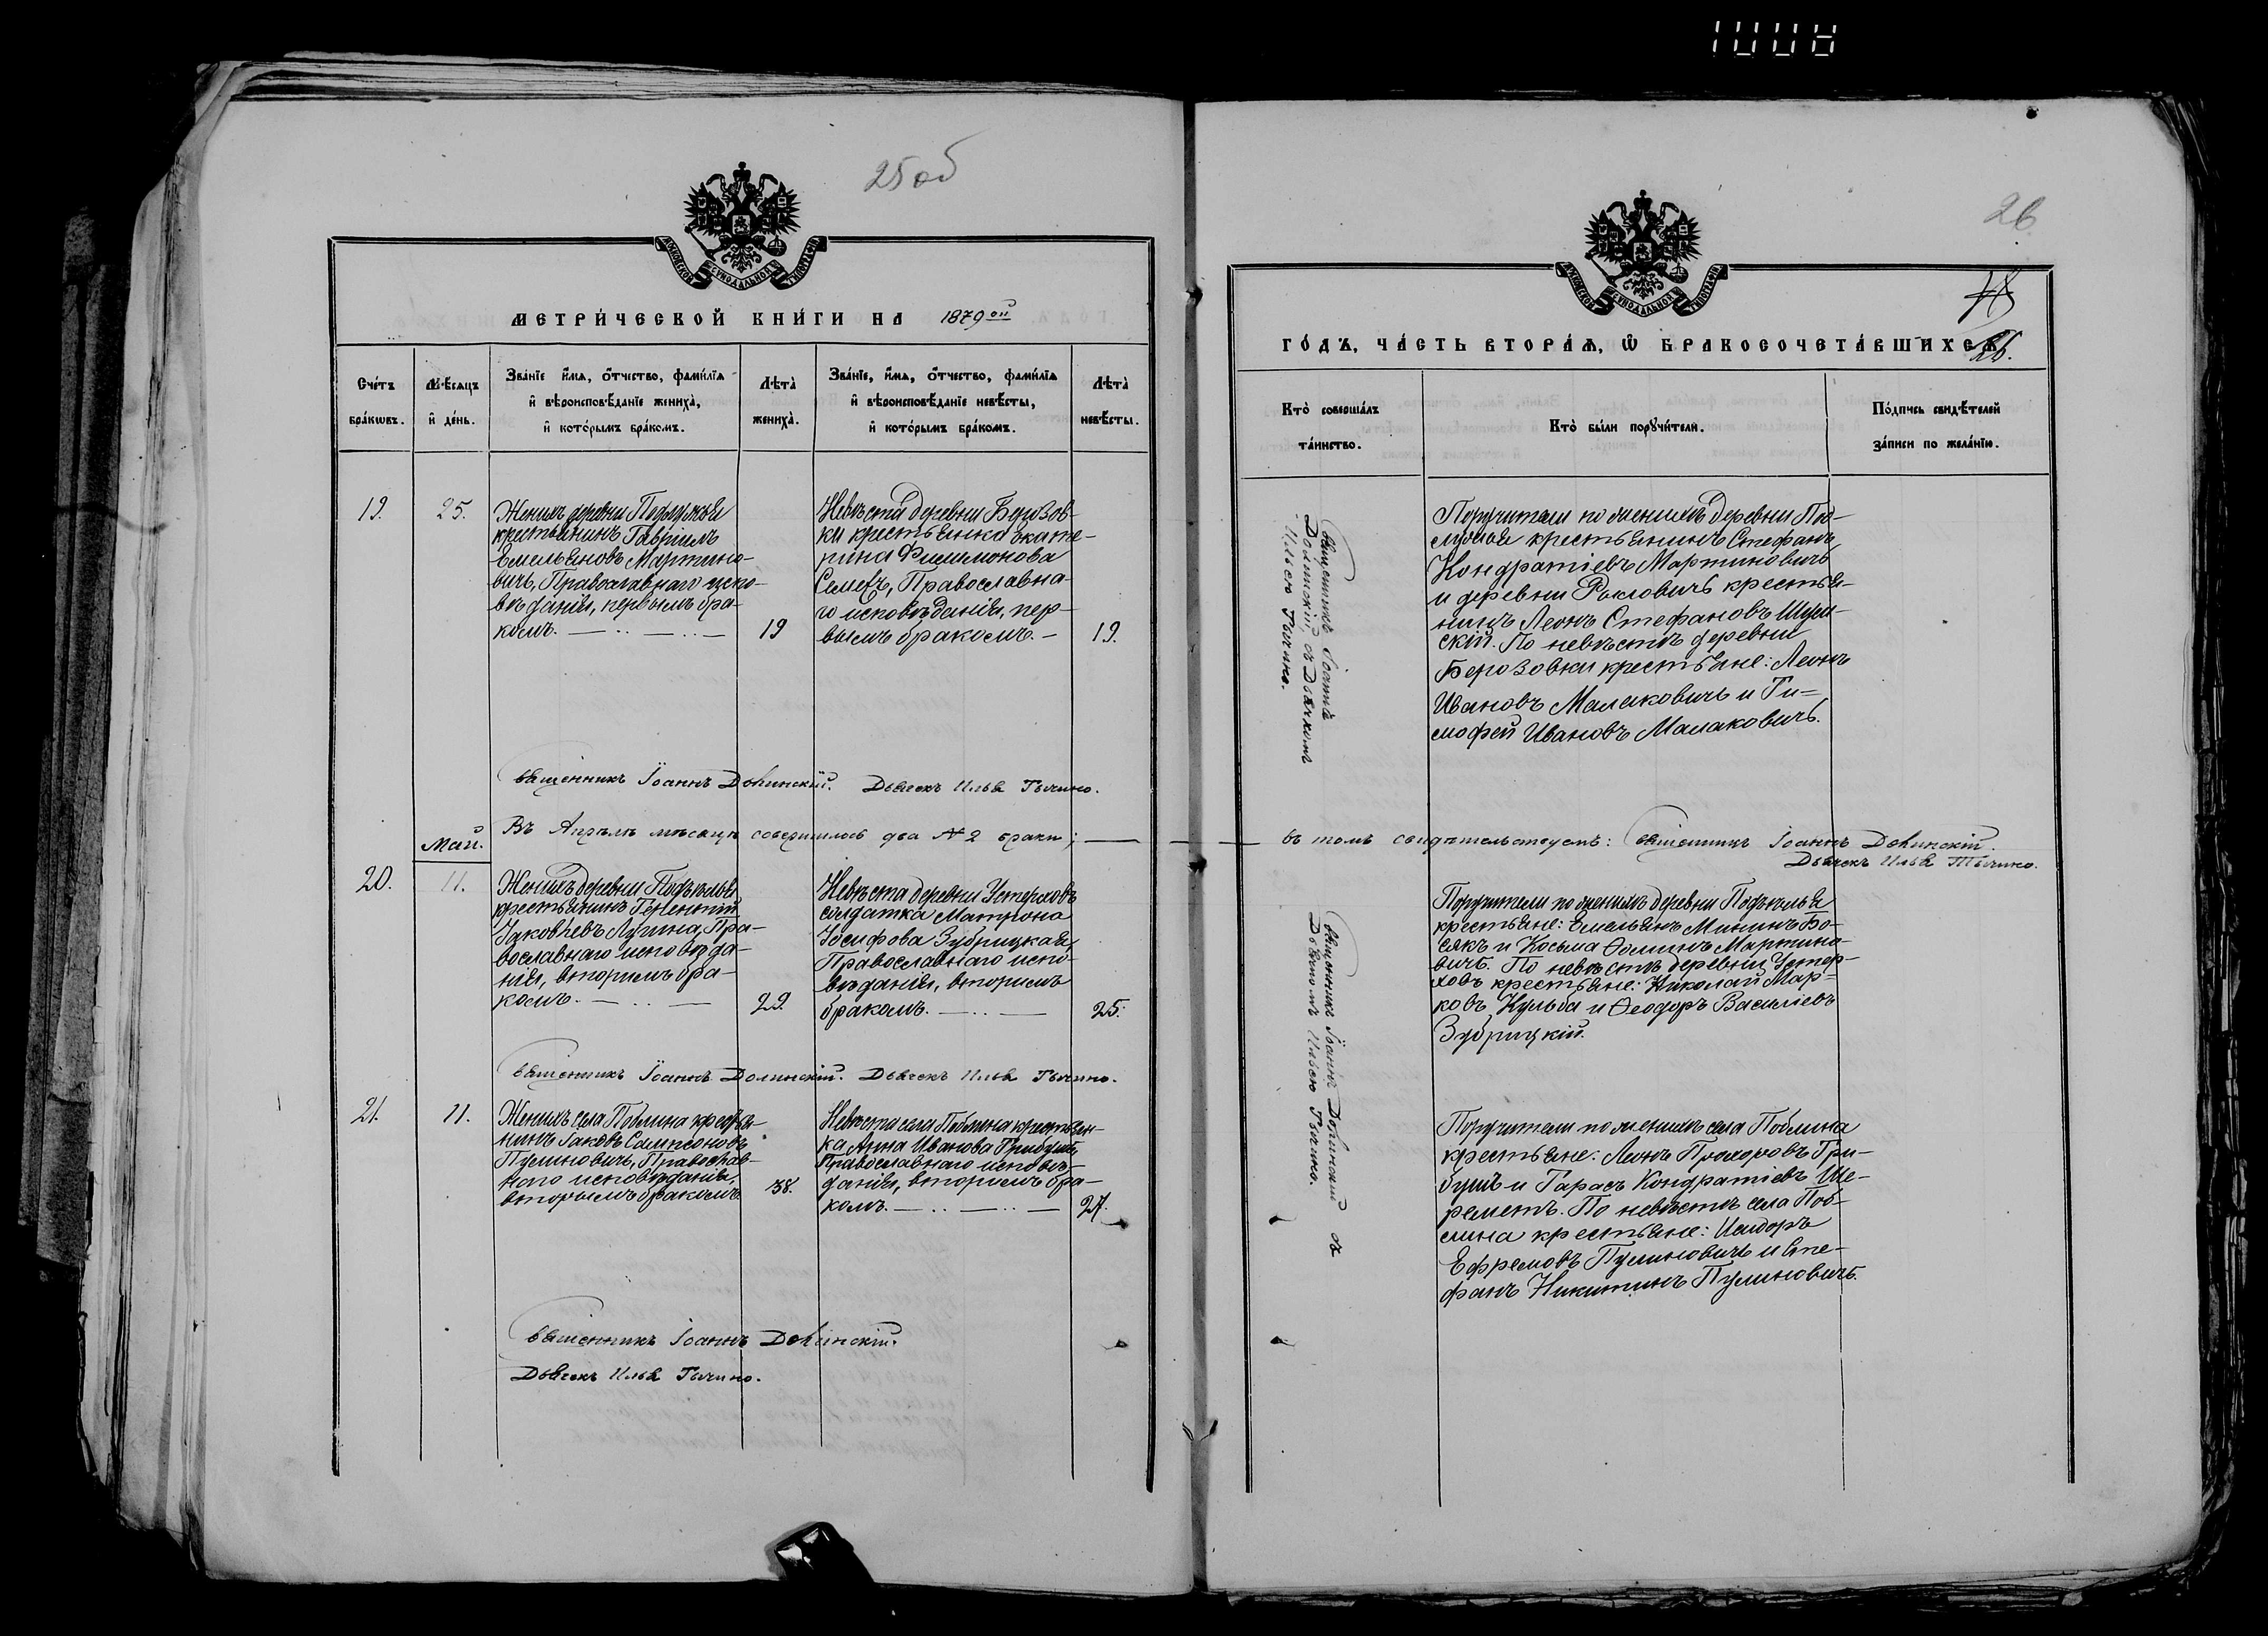 1008
25 об
МОСКОВСКОЙ СѴНОДАЛЬНОЙ ТИПОГРАФІИ
МЕТРИ́ЧЕСКОЙ КНИ́ГИ НА 1879 ой
Сче́тъ бра́кѡвъ.
Мѣ́сяцъ и҆ де́нь.
Зва́нїе и҆́мѧ, ѻ҆́тчество, фами́лїѧ
и҆ вѣроисповѣ́данїе жениха̀,
и҆ кото́рымъ бра́комъ.
Лѣта̀ жениха̀.
Зва́нїе, и҆́мѧ, ѻ҆́тчество, фами́лїѧ
и҆ вѣроисповѣ́данїе невѣ́сты,
и҆ кото́рымъ бра́комъ.
Лѣта̀ невѣ́сты.
19.
25.
Женихъ деревни
крестьянинъ Гавріилъ
Емельяновъ Мартино-
вичъ, Православнаго испо-
вѣданія, первымъ бра-
комъ.
19
Невѣста деревни Березов-
ки крестьянка Екате-
рина Филимонова
Семенъ, Православна-
го исповѣданія, пер-
вымъ бракомъ. –
19.
Священникъ Іоаннъ Долинскій. Дьячекъ Илья Тычино.
Въ Апрѣлѣ мѣсяцѣ совершилось два № 2 браки;
Май.
20.
11.
Женихъ деревни Подъельья
крестьянинъ Терентій
Іаковлевъ Лугина, Пра-
вославнаго исповѣда-
нія, вторымъ бра-
комъ.
22.
Невѣста деревни Устерховъ
солдатка Матрона
Іосифова Зубрицкая,
Православнаго испо-
вѣданія, вторымъ
бракомъ.
25.
Священникъ Іоаннъ Долинскій. Дьячекъ Илья Тычино.
21.
11.
Женихъ села Поблина крестья-
нинъ Іаковъ Сампсоновъ
Пулиновичъ, Православ-
наго исповѣданія,
вторымъ бракомъ
38.
Невѣста села Поблина крестьян-
ка Анна Иванова Грибушъ,
Православнаго исповѣ-
данія, вторымъ бра-
комъ.
27.
Священникъ Іоаннъ Долинскій.
Дьячекъ Илья Тычино.
26
26.
МОСКОВСКОЙ СѴНОДАЛЬНОЙ ТИПОГРАФІИ
ГО́ДЪ, ЧА́СТЬ ВТОРА́Ѧ, Ѡ҆ БРАКОСОЧЕТА́ВШИХСѦ.
Кто̀ соверша́лъ та́инство.
Кто̀ бы́ли порꙋчи́тели.
По́дпись свидѣ́телей за́писи по жела́нїю.
Священникъ Іоаннъ
Долинскій, съ Дьячкомъ
Ильею Тычино.
Поручители по женихѣ деревни Под-
крестьянинъ Стефанъ
Кондратіевъ Мартиновичъ
и деревни Рокловичъ крестья-
нинъ Леонъ Стефановъ
По невѣстѣ деревни
Березовки крестьяне: Леонъ
Ивановъ Малаковичъ и Ти=
мофей Ивановъ Малаковичъ.
въ томъ свидѣтельствуемъ: Священникъ Іоаннъ Долинскій.
Дьячекъ Илья Тычино.
Священникъ Іоаннъ Долинскій съ
Дьячкомъ Ильею Тычино.
Поручители по женихѣ деревни Подъелья
крестьяне: Емельянъ Мининъ Бо-
сякъ и Косьма Ѳоминъ Мартино-
вичъ. По невѣстѣ деревни Устер-
ховъ крестьяне: Николай Мар-
ковъ Кульба и Ѳеодоръ Василіевъ
Зубрицкій.
Поручители по женихѣ села Поблина
крестьяне: Леонъ Прохоровъ Гри-
бушъ и Тарасъ Кондратіевъ Ше-
реметъ. По невѣстѣ села Поб-
лина крестьяне: Исидоръ
Ефремовъ Пулиновичъ и Сте-
фанъ Никитинъ Пулиновичъ.